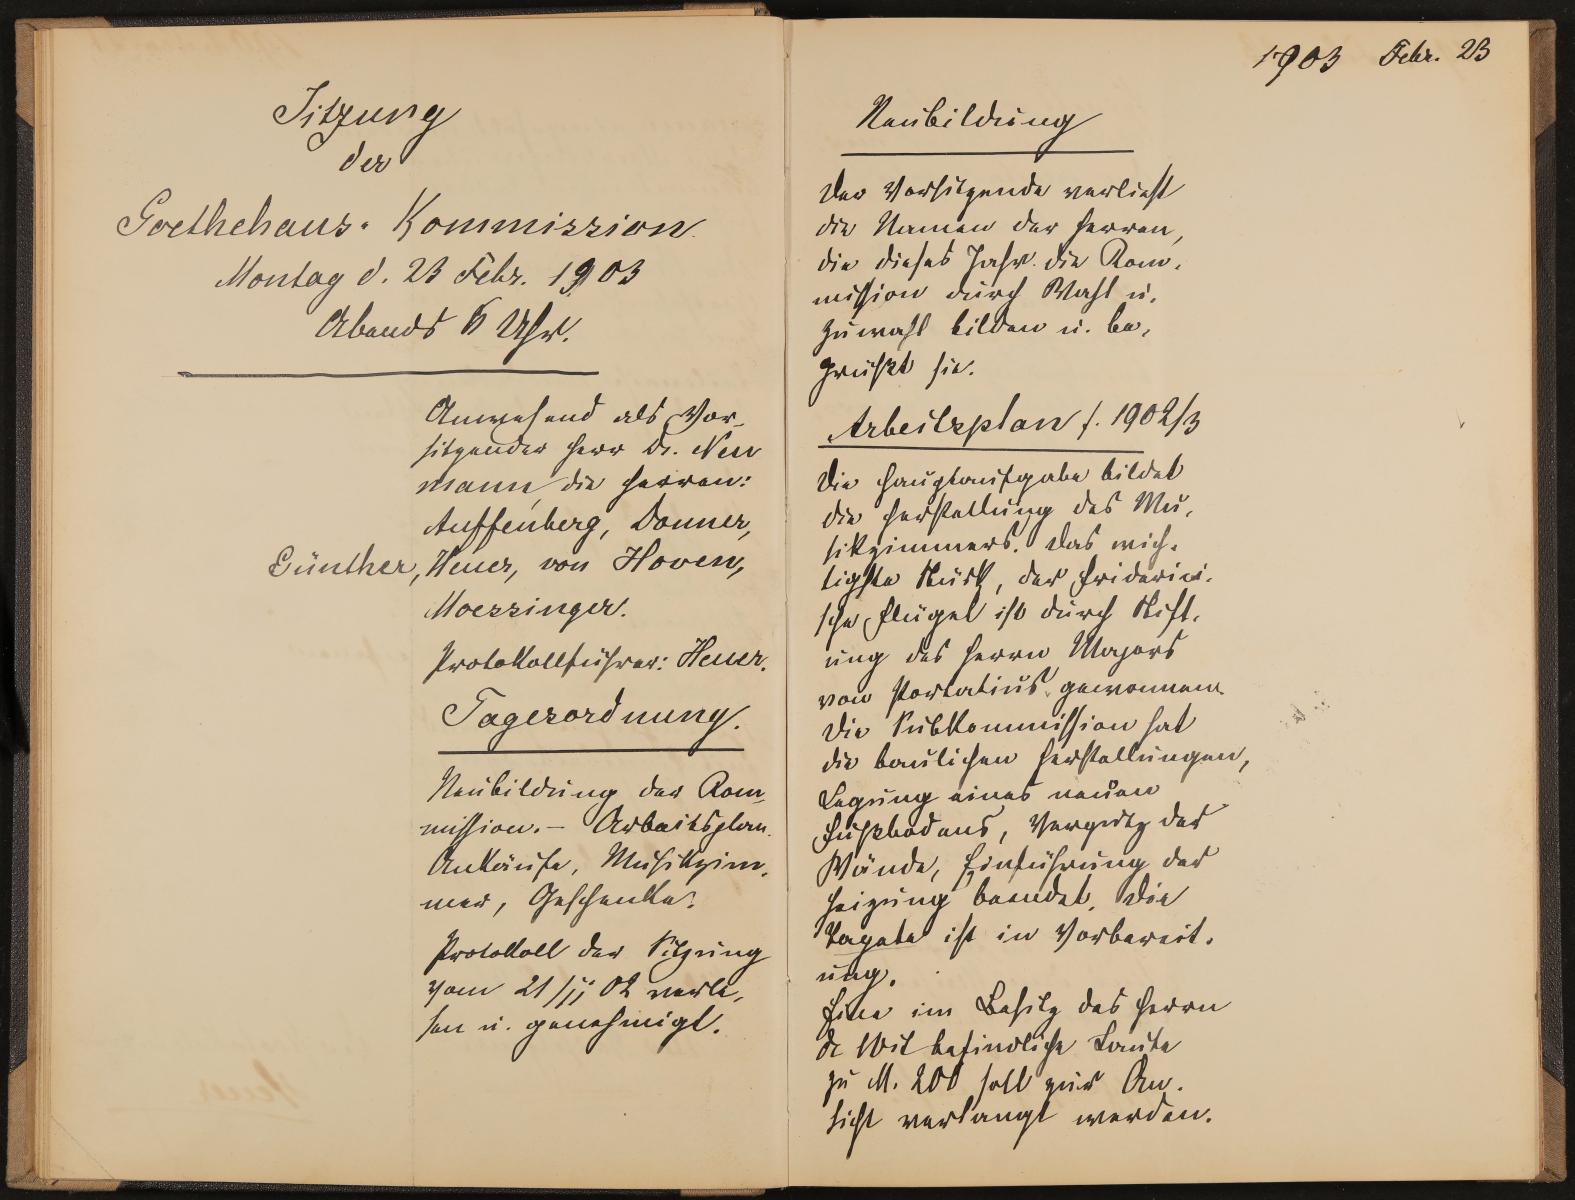 Sitzung
der
Goethehaus-Kommission
Montag d. 23 Febr. 1903
Abends 6 Uhr.
Anwesend als Vor-
sitzender Herr Dr. Neu
mann, die Herren:
Auffenberg, Donner,
Günther, Heuer, von Hoven,
Moessinger.
Protokollführer: Heuer.
Tagesordnung.
Neubildung der Kom-
mission. – Arbeitsplan.
Ankäufe, Musikzim-
mer, Geschenke.
Protokoll der Sitzung
vom 21/II 02 verle-
sen u. genehmigt.
1903 Febr. 23
Neubildung
Der Vorsitzende verliest
die Namen der Herren,
die dieses Jahr die Kom-
mission durch Wahl u.
Zuwahl bilden u. be-
grüßt sie.
Arbeitsplan f. 1902/3
Die Hauptaufgabe bildet
die Herstellung des Mu-
sikzimmers. Das wich-
tigste Stück, der friderici-
sche Flügel ist durch Stift-
ung des Herrn Majors
von Portatius gewonnen.
Die Subkommission hat
die baulichen Herstellungen,
Legung eines neuen
Fußbodens, Verputz der
Wände, Einführung der
Heizung beendet. Die
Tapete ist in Vorbereit-
ung.
Eine im Besitz des Herrn
de Wit befindliche Laute
zu M. 200 soll zur An-
sicht verlangt werden.